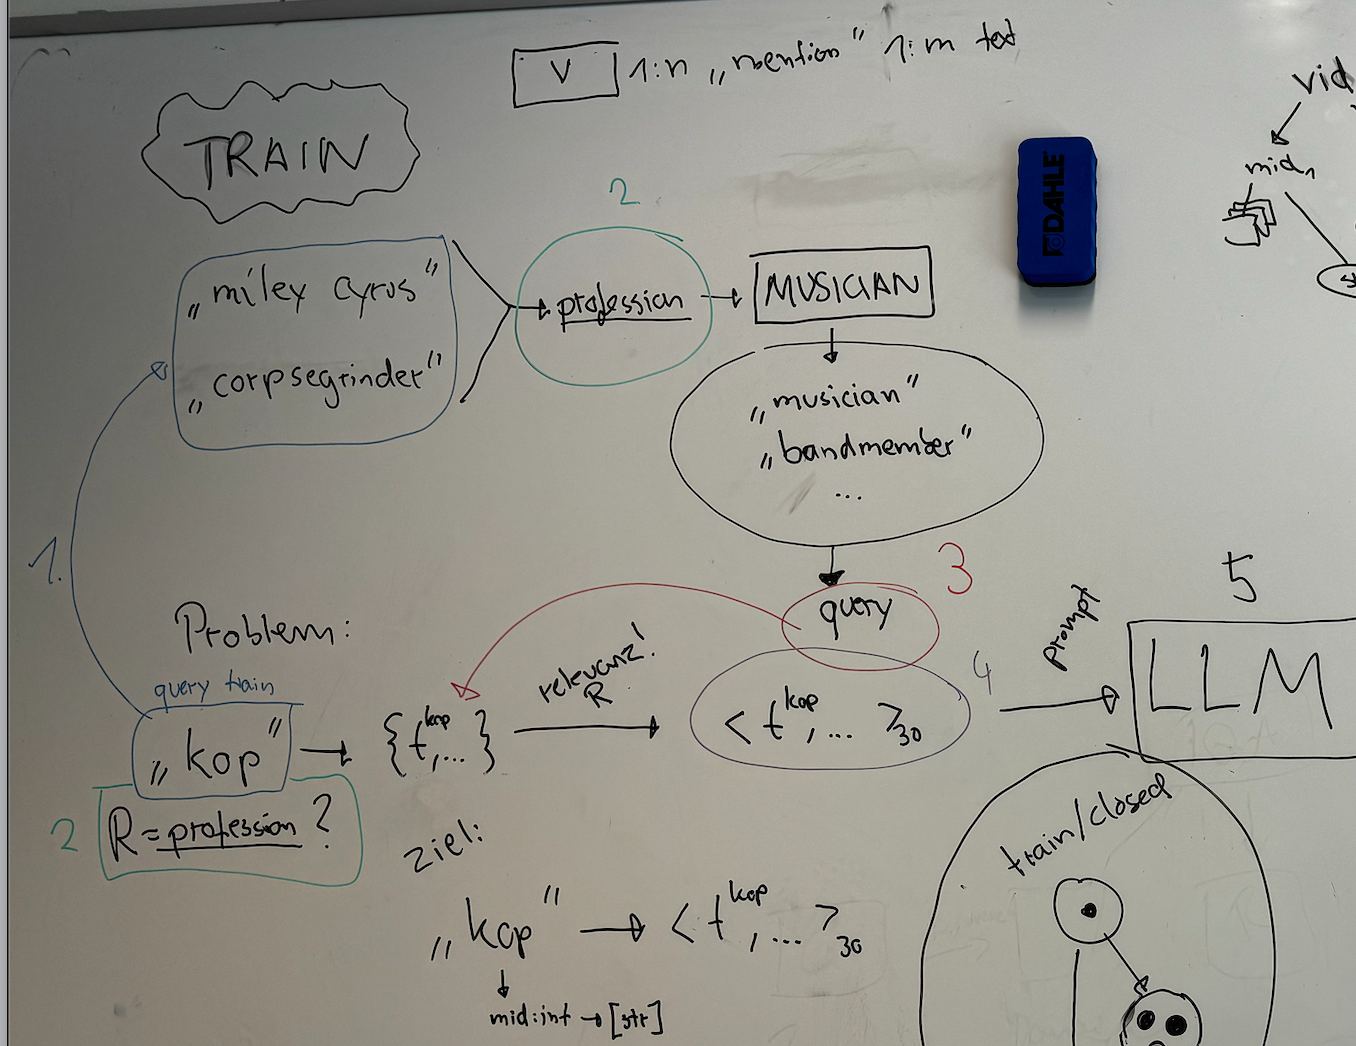 V 1:n „mention" 1:m text
TRAIN
vid
mid₁
DAHLE
2
„miley cyrus"
„corpsegrinder"
profession
MUSICIAN
„musician"
„bandmember"
...
1.
3
query
Problem:
query train
„kop"
{t^kop,...}
relevanz!
R
<t^kop,...>₃₀
4
prompt
5
LLM
2
R = profession ?
ziel:
„kop" → <t^kop,...>₃₀
mid:int → [str]
train/closed